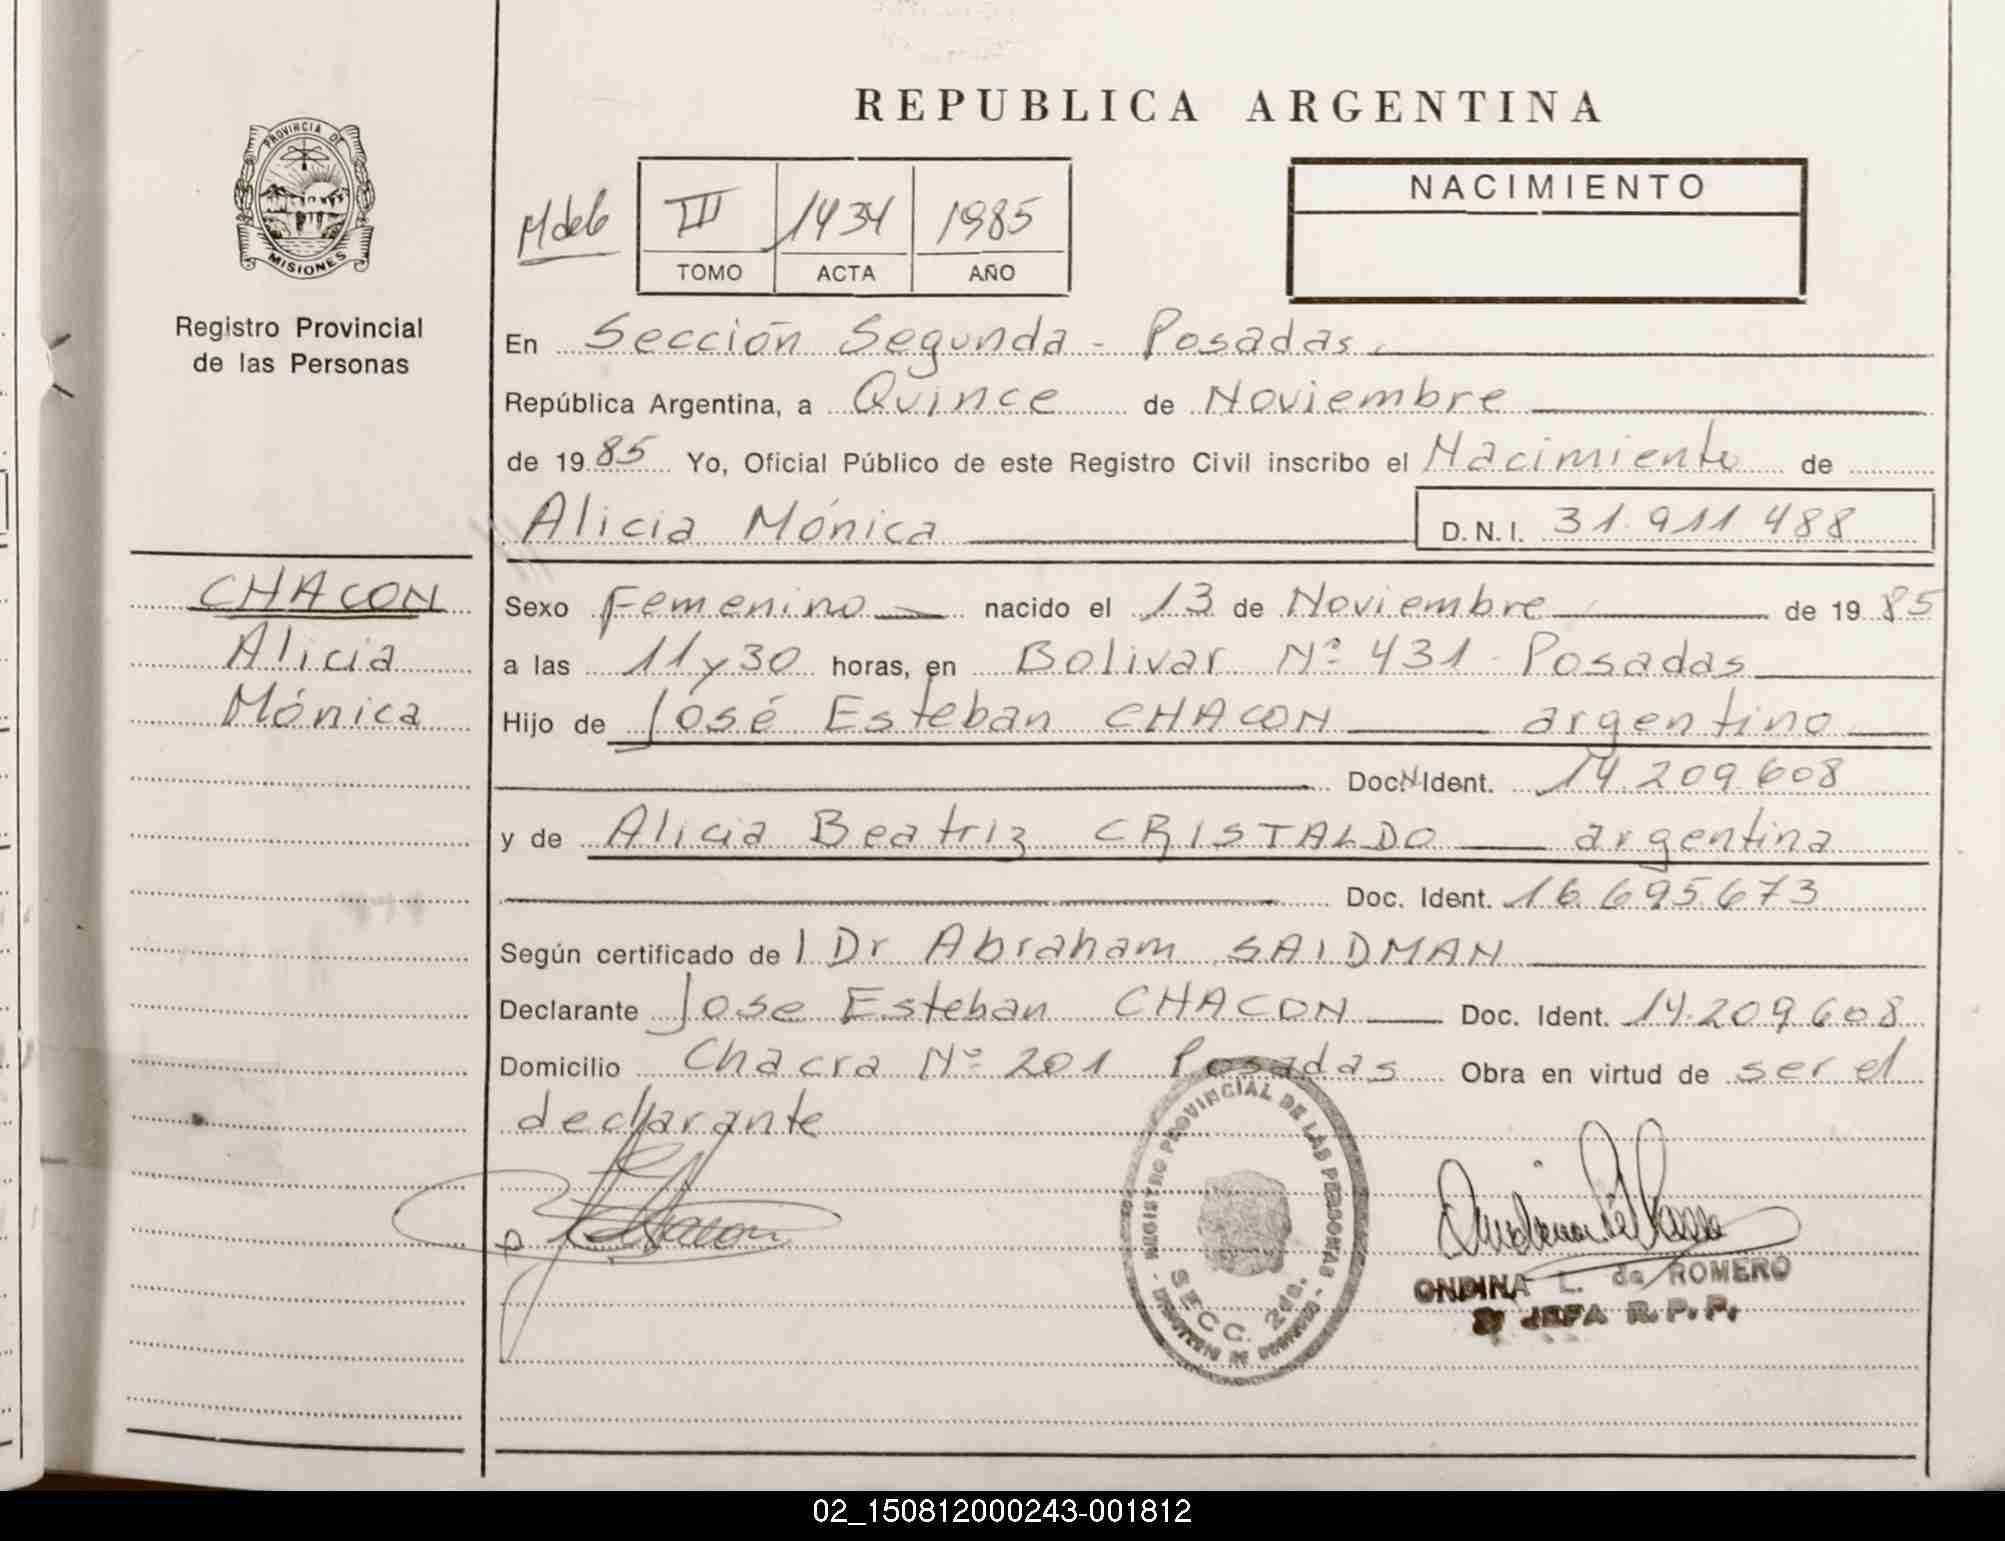 REPUBLICA ARGENTINA
PROVINCIA DE
MISIONES
Registro Provincial
de las Personas
III 1434 1985
TOMO ACTA AÑO
NACIMIENTO
En Sección Segunda - Posadas.
República Argentina, a Quince de Noviembre
de 1985 Yo, Oficial Público de este Registro Civil inscribo el Nacimiento de
Alicia Mónica D.N.I. 31.911.488
CHACON
Alicia
Mónica
Sexo Femenino nacido el 13 de Noviembre de 1985
a las 11 y 30 horas, en Bolivar Nº 431 - Posadas
Hijo de José Esteban CHACON argentino
Doc. N Ident. 14.209.608
y de Alicia Beatriz CRISTALDO argentina
Doc. Ident. 16.695.673
Según certificado de l Dr Abraham SAIDMAN
Declarante Jose Esteban CHACON Doc. Ident. 14.209.608
Domicilio Chacra Nº 201 Posadas Obra en virtud de ser el
declarante
REGISTRO PROVINCIAL DE LAS PERSONAS
SECC. 2da.
ONDINA L. de ROMERO
JEFA R.P.P.
02_150812000243-001812